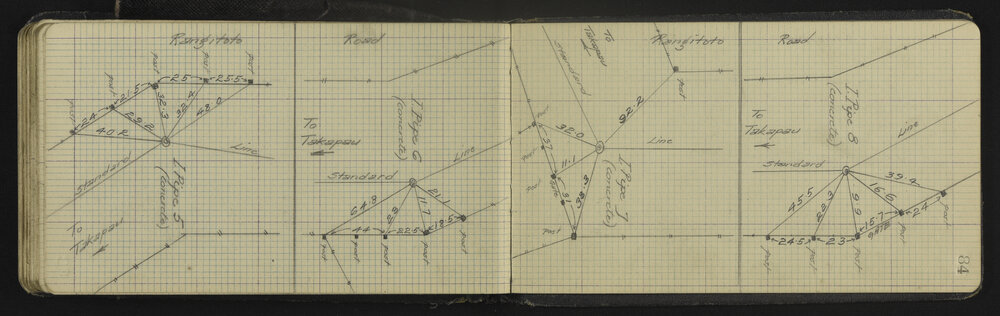 Rangitoto Road
post
post
post
post
24
21.5
25
25.5
29.2
32.3
32.4
48.0
Standard
Line
I. Pipe 5
(concrete)
To
Takapau
To
Takapau
I. Pipe 6
(concrete)
Standard
Line
64.8
11.7
21.1
44
22.5
18.5
post
post
post
post
Rangitoto Road
To
Takapau
Standard
92.2
post
32.0
Line
11.1
31
I. Pipe 7
(concrete)
post
post
Gate
post
To
Takapau
I. Pipe 8
(concrete)
Standard
Line
39.4
45.5
29.3
9.9
16.6
15.7
24
24.5
23
Gate
post
post
post
post
post
84